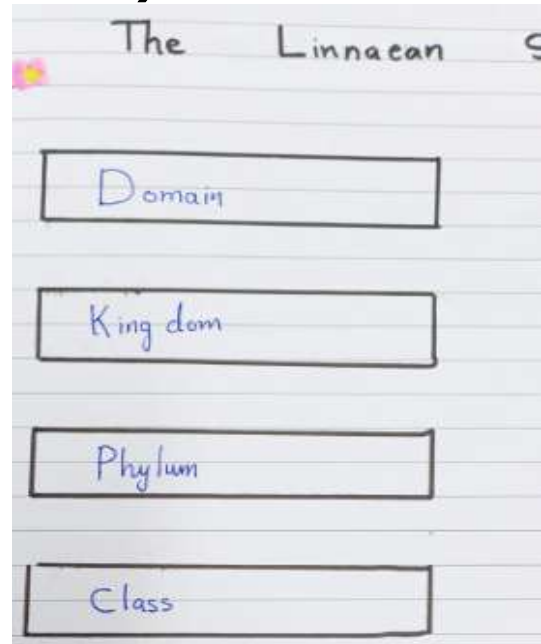 The Linnaean
Domain
Kingdom
Phylum
Class